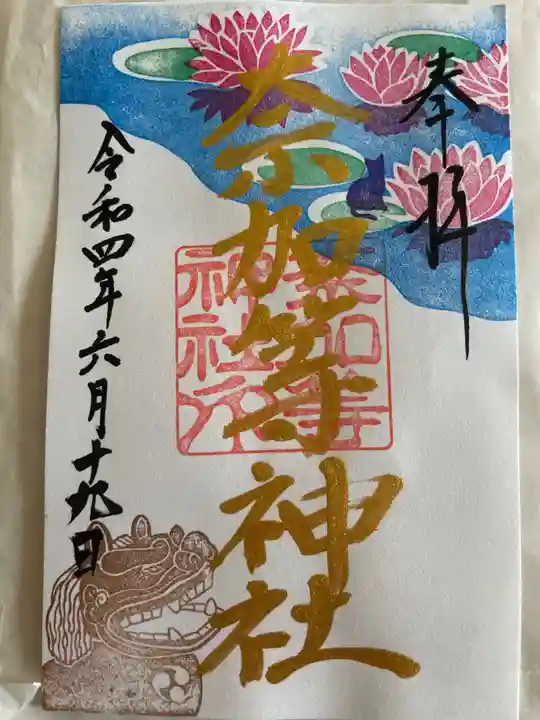 奉拝
奈加等神社
奈加等
神社印
令和四年六月十九日